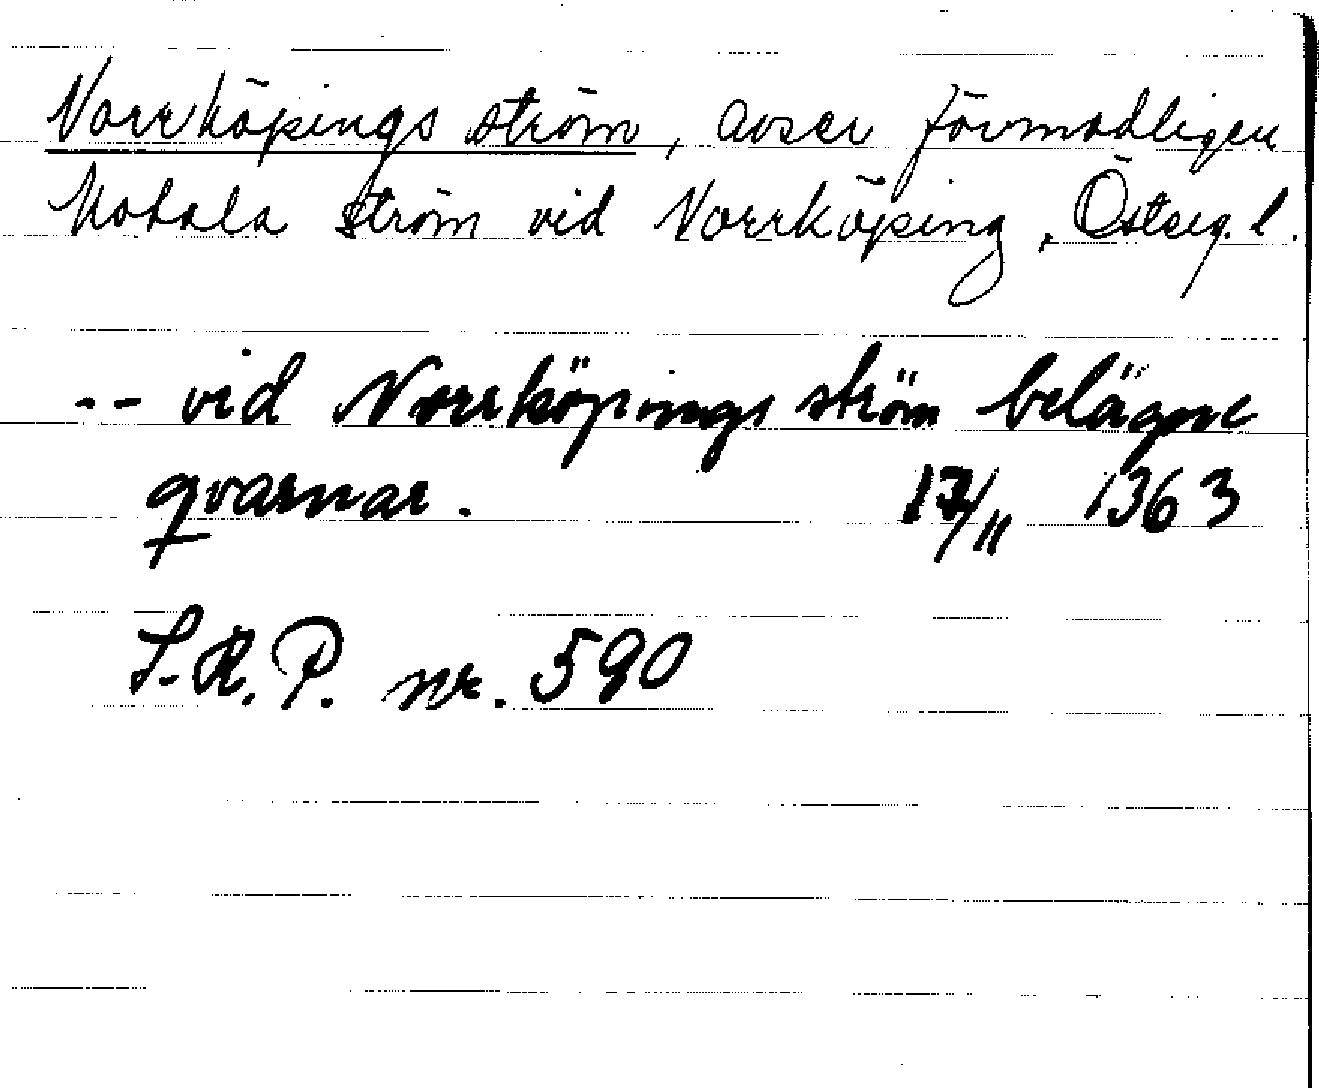 Norrköpings ström, avser förmodligen
Motala ström vid Norrköping, Österg. l.
-- vid Norrköpings ström belägne
qvarnar. 17/11 1363
S.R.P. nr. 590